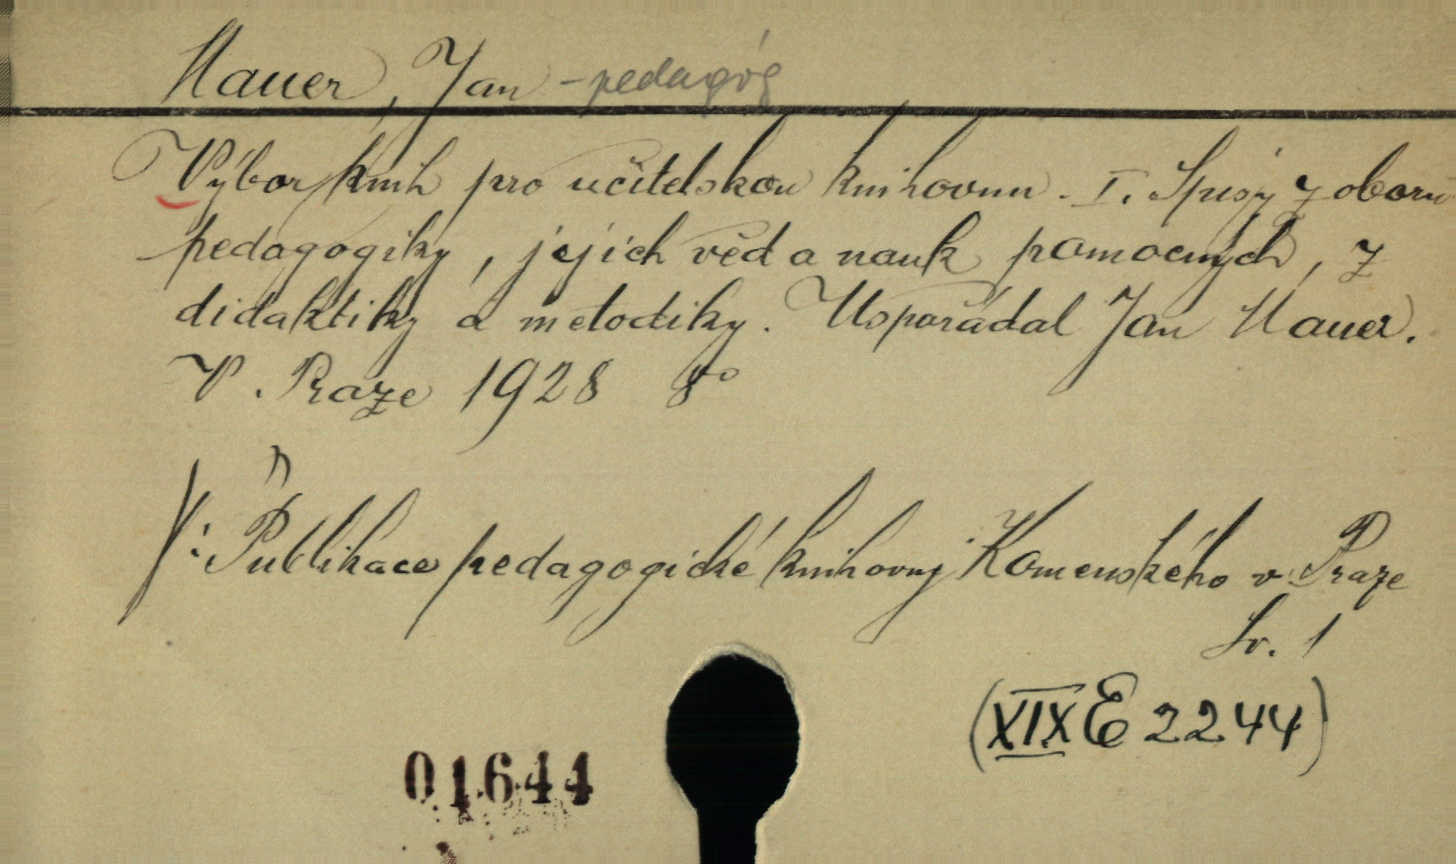 Mauer, Jan - pedagóg
Výbor knih pro učitelskou knihovnu. I. Spisy z oboru
pedagogiky, jejích věd a nauk pomocných, z
didaktiky a metodiky. Uspořádal Jan Mauer.
V. Praze 1928 8°
V: Publikace pedagogické knihovny Komenského v Praze
Sv. 1
(XIX E 2244)
01644